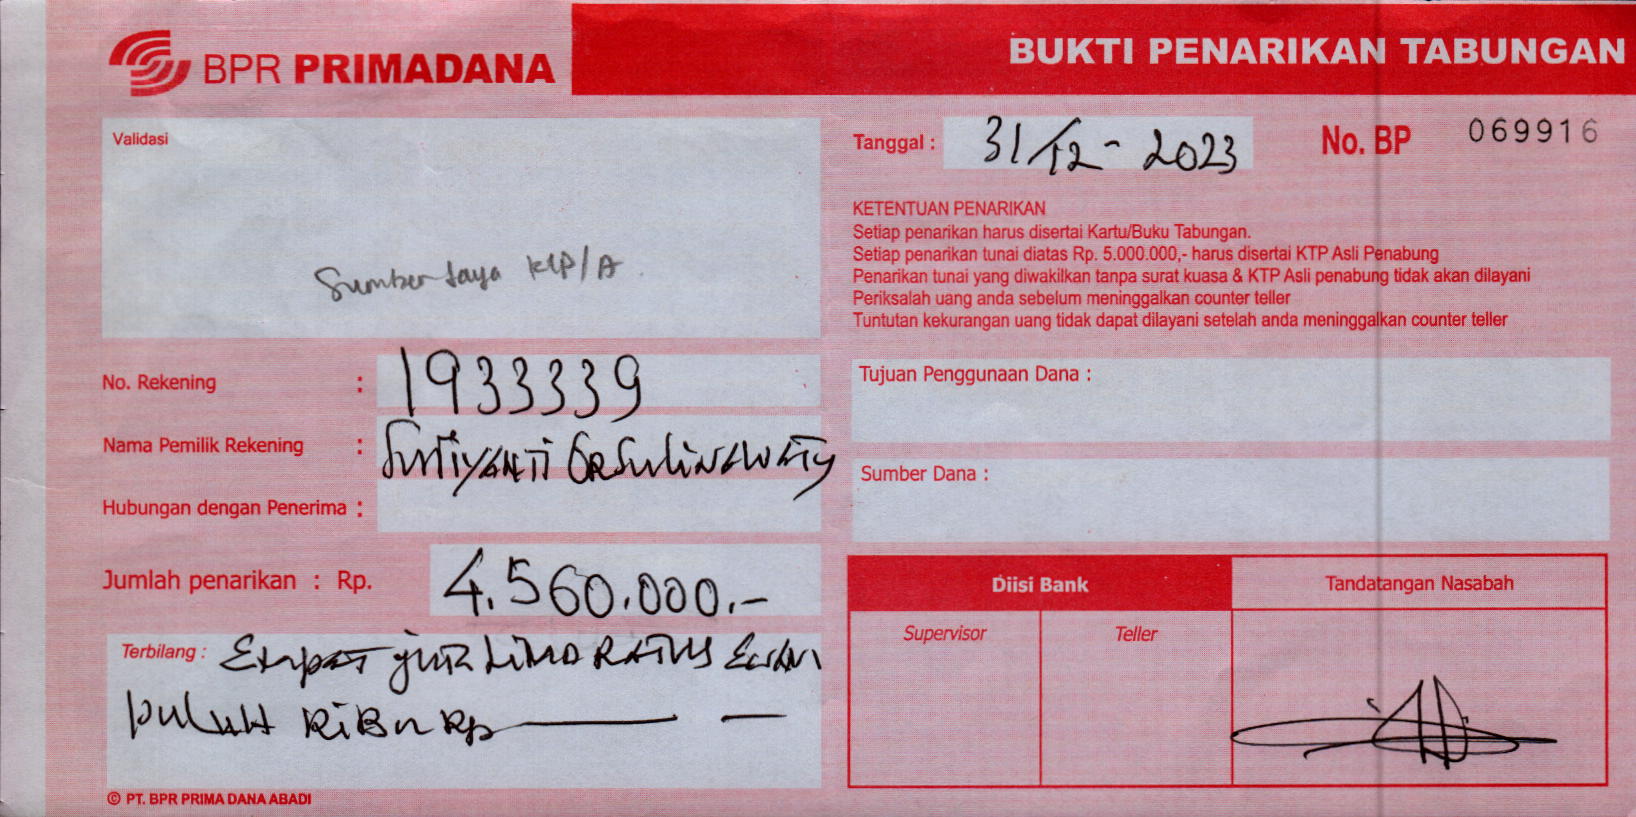 BPR PRIMADANA
BUKTI PENARIKAN TABUNGAN
Validasi
Sumber Jaya KLP/A
Tanggal : 31/12 - 2023
No. BP 069916
KETENTUAN PENARIKAN
Setiap penarikan harus disertai Kartu/Buku Tabungan.
Setiap penarikan tunai diatas Rp. 5.000.000,- harus disertai KTP Asli Penabung
Penarikan tunai yang diwakilkan tanpa surat kuasa & KTP Asli penabung tidak akan dilayani
Periksalah uang anda sebelum meninggalkan counter teller
Tuntutan kekurangan uang tidak dapat dilayani setelah anda meninggalkan counter teller
No. Rekening : 1933339
Nama Pemilik Rekening :
Hubungan dengan Penerima :
Jumlah penarikan : Rp. 4.560.000.-
Terbilang : Empat juta LiMA RATUS Enam
puluH RiBu Rp
© PT. BPR PRIMA DANA ABADI
Tujuan Penggunaan Dana :
Sumber Dana :
Diisi Bank
Tandatangan Nasabah
Supervisor
Teller